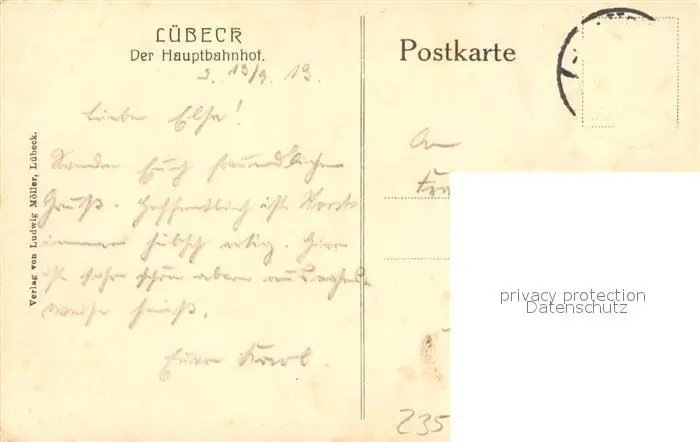 LÜBECK
Der Hauptbahnhof.
Postkarte
19/9. 13.
Liebe Else!
Sende Euch freundlichen
Gruß. Hoffentlich ist
immer hübsch artig. Hier
ist sehr schön aber
weise heiß.
Euer Karl.
An
Verlag von Ludwig Möller, Lübeck.
privacy protection
Datenschutz
235